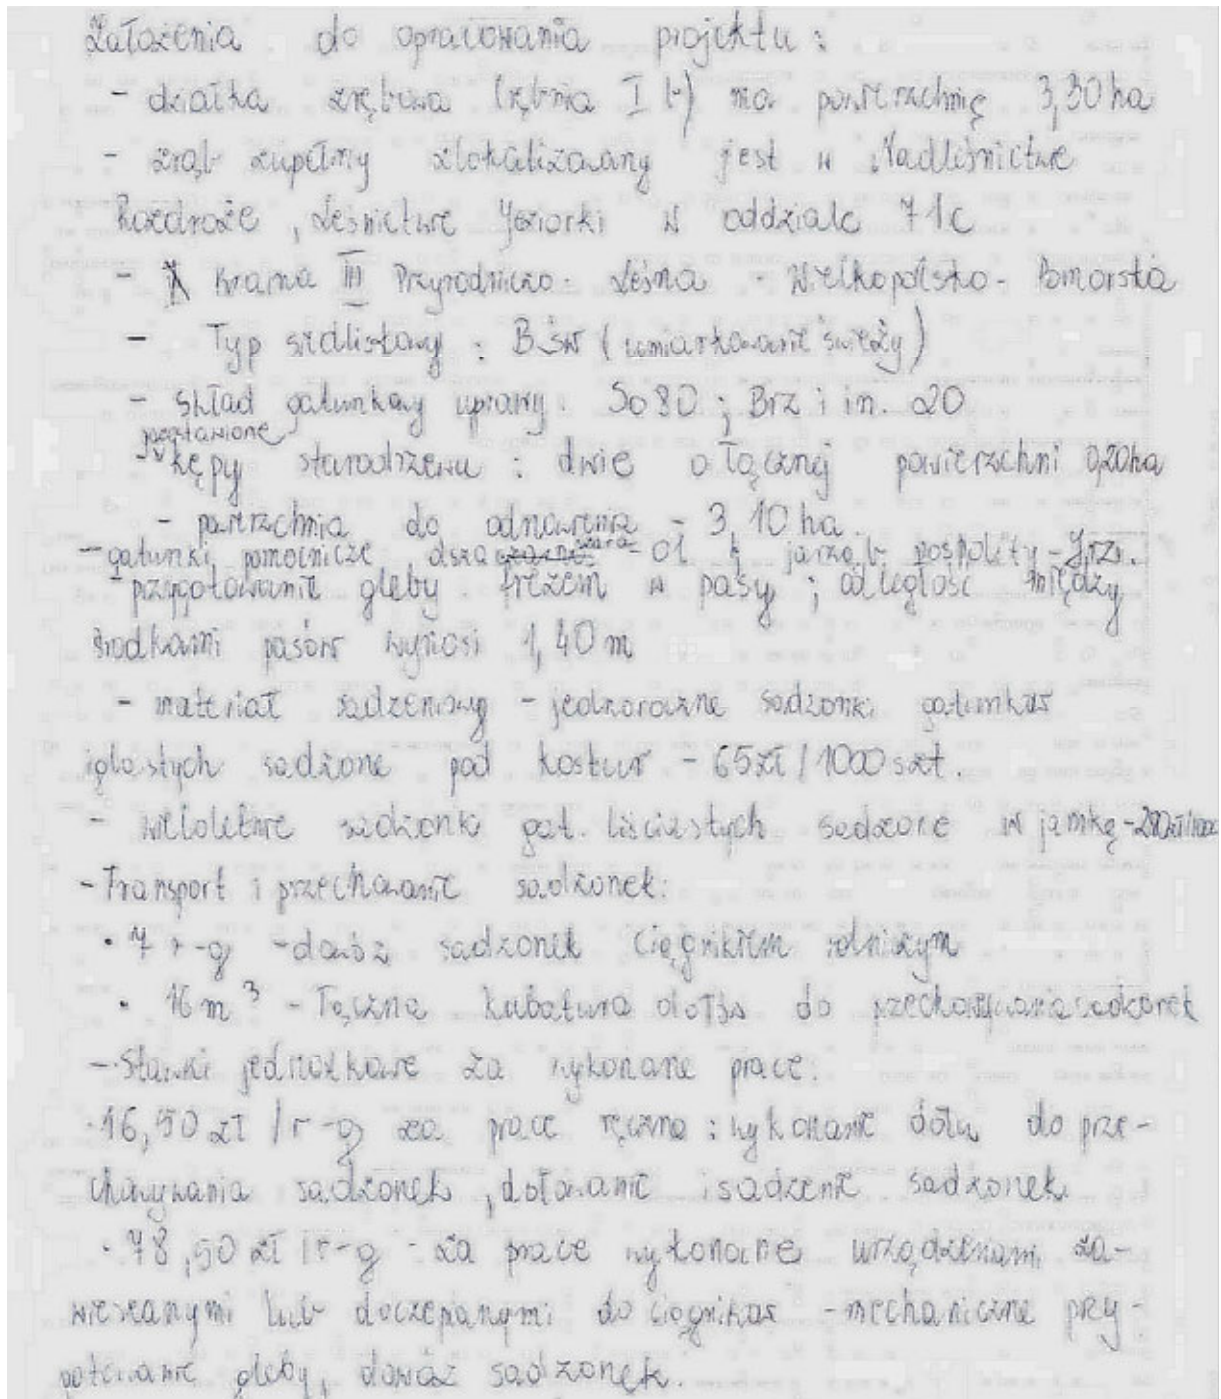 Założenia do opracowania projektu:
- działka zrębowa (rębnia I b) ma powierzchnię 3,30 ha
- zrąb zupełny zlokalizowany jest w Nadleśnictwie
Rozdroże, Leśnictwie Jeziorki w oddziale 71c
- Kraina III Przyrodniczo-Leśna - Wielkopolsko-Pomorska
- Typ siedliskowy: BŚw (umiarkowanie świeży)
- Skład gatunkowy uprawy: So 80; Brz i in. 20
pozostawione
- kępy starodrzewu: dwie o łącznej powierzchni 0,20ha
- powierzchnia do odnowienia - 3,10 ha.
- gatunki pomocnicze olsza szara - Ol jarząb pospolity - Jrz.
- przygotowanie gleby frezem w pasy; odległość między
środkami pasów wynosi 1,40 m
- materiał sadzeniowy - jednoroczne sadzonki gatunków
iglastych sadzone pod kostur - 65zł/1000 szt.
- wieloletnie sadzonki gat. liściastych sadzone w jamkę -
- Transport i przechowanie sadzonek:
• 7 r-g - dowóz sadzonek ciągnikiem rolniczym
• 16 m³ - łączna kubatura dołów do przechowywania sadzonek
- Stawki jednostkowe za wykonane prace:
· 16,50 zł /r-g za prace ręczne: wykonanie dołu do prze-
chowywania sadzonek, dołowanie i sadzenie sadzonek
· 78,50 zł /r-g - za prace wykonane urządzeniami za-
wieszanymi lub doczepianymi do ciągników - mechaniczne przy-
gotowanie gleby, dowóz sadzonek.